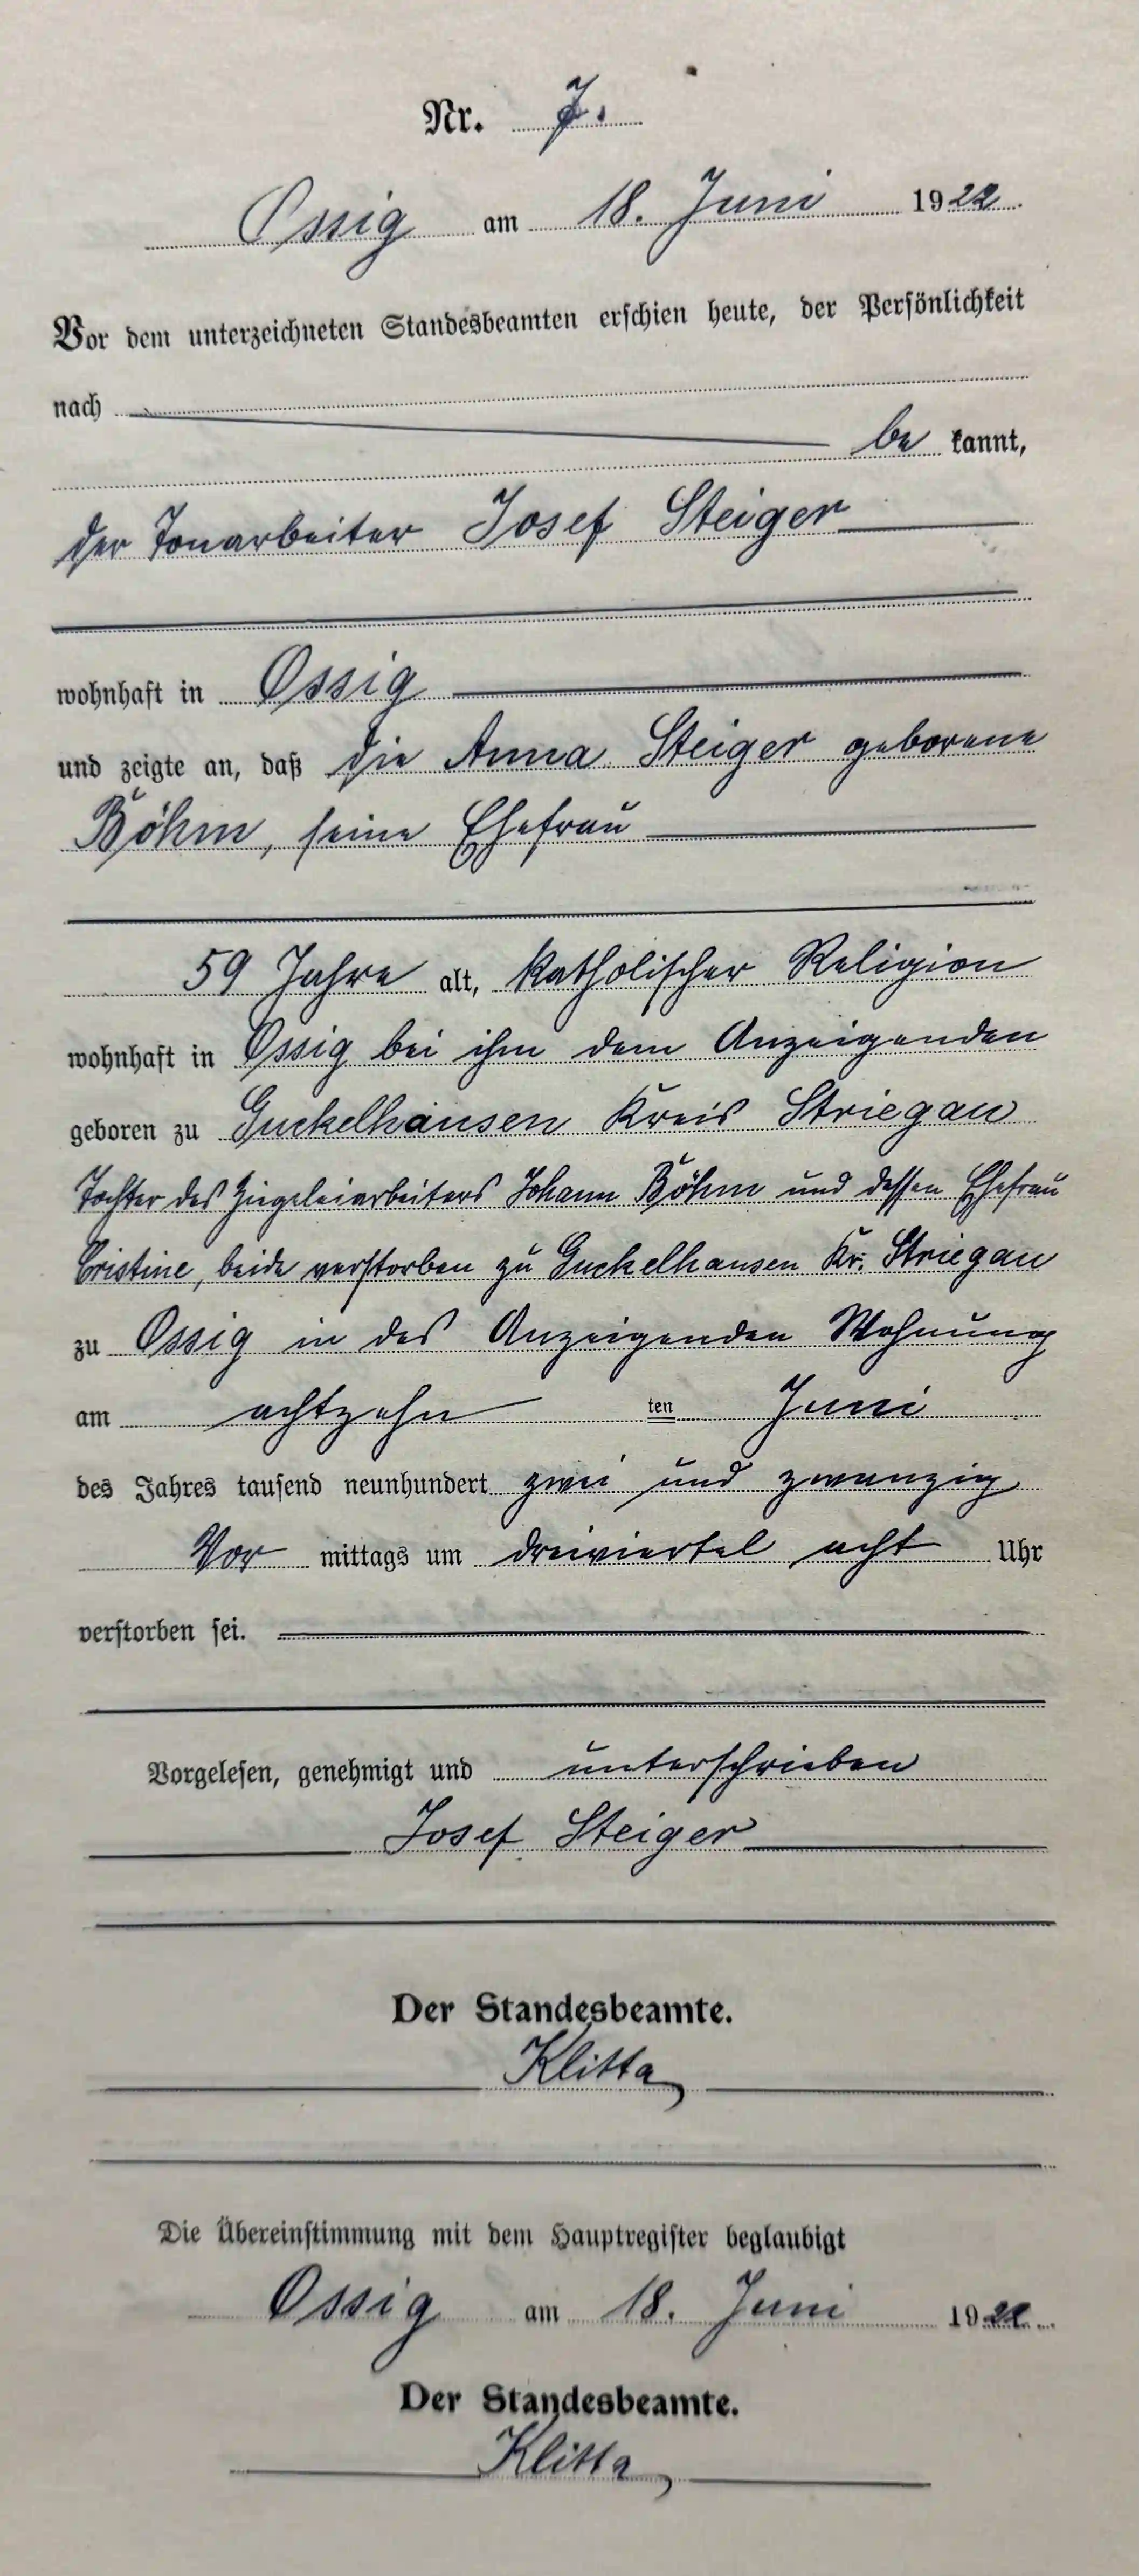 Nr. 7.
Ossig am 18. Juni 1922.
Vor dem unterzeichneten Standesbeamten erschien heute, der Persönlichkeit
nach
be kannt,
der Tonarbeiter Josef Steiger
wohnhaft in Ossig
und zeigte an, daß die Anna Steiger geborene
Böhm, seine Ehefrau
59 Jahre alt, katholischer Religion
wohnhaft in Ossig bei ihm dem Anzeigenden
geboren zu Guckelhausen Kreis Striegau
Tochter des Ziegeleiarbeiters Johann Böhm und dessen Ehefrau
Cristine, beide verstorben zu Guckelhausen Kr. Striegau
zu Ossig in des Anzeigenden Wohnung
am achtzehn ten Juni
des Jahres tausend neunhundert zwei und zwanzig
Vor mittags um dreiviertel acht Uhr
verstorben sei.
Vorgelesen, genehmigt und unterschrieben
Josef Steiger
Der Standesbeamte.
Klitta
Die Übereinstimmung mit dem Hauptregister beglaubigt
Ossig am 18. Juni 1922.
Der Standesbeamte.
Klitta